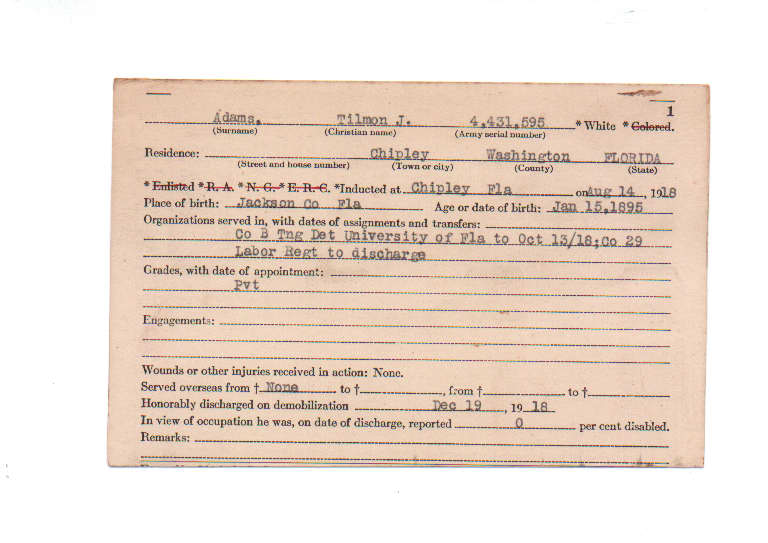 1
Adams, Tilmon J. 4,431,595 * White * Colored.
(Surname) (Christian name) (Army serial number)
Residence: Chipley Washington FLORIDA
(Street and house number) (Town or city) (County) (State)
* Enlisted * R. A. * N. G. * E. R. C. *Inducted at Chipley Fla on Aug 14, 1918
Place of birth: Jackson Co Fla Age or date of birth: Jan 15,1895
Organizations served in, with dates of assignments and transfers:
Co B Tng Det University of Fla to Oct 13/18;Co 29
Labor Regt to discharge
Grades, with date of appointment:
Pvt
Engagements:
Wounds or other injuries received in action: None.
Served overseas from † None to †, from † to †
Honorably discharged on demobilization Dec 19, 1918
In view of occupation he was, on date of discharge, reported 0 per cent disabled.
Remarks: